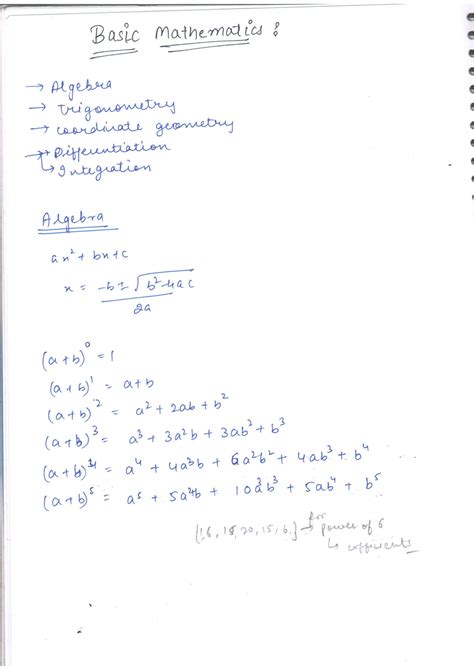 Basic Mathematics :
→ Algebra
→ Trigonometry
→ coordinate geometry
→ Differentiation
↳ Integration
Algebra
ax² + bx + c
x = -b ± √b² - 4ac
2a
(a + b)⁰ = 1
(a + b)¹ = a + b
(a + b)² = a² + 2ab + b²
(a + b)³ = a³ + 3a²b + 3ab² + b³
(a + b)⁴ = a⁴ + 4a³b + 6a²b² + 4ab³ + b⁴
(a + b)⁵ = a⁵ + 5a⁴b + 10a³b³ + 5ab⁴ + b⁵
for
15, 20, 15, 6, → power of 6
↳ cofficients